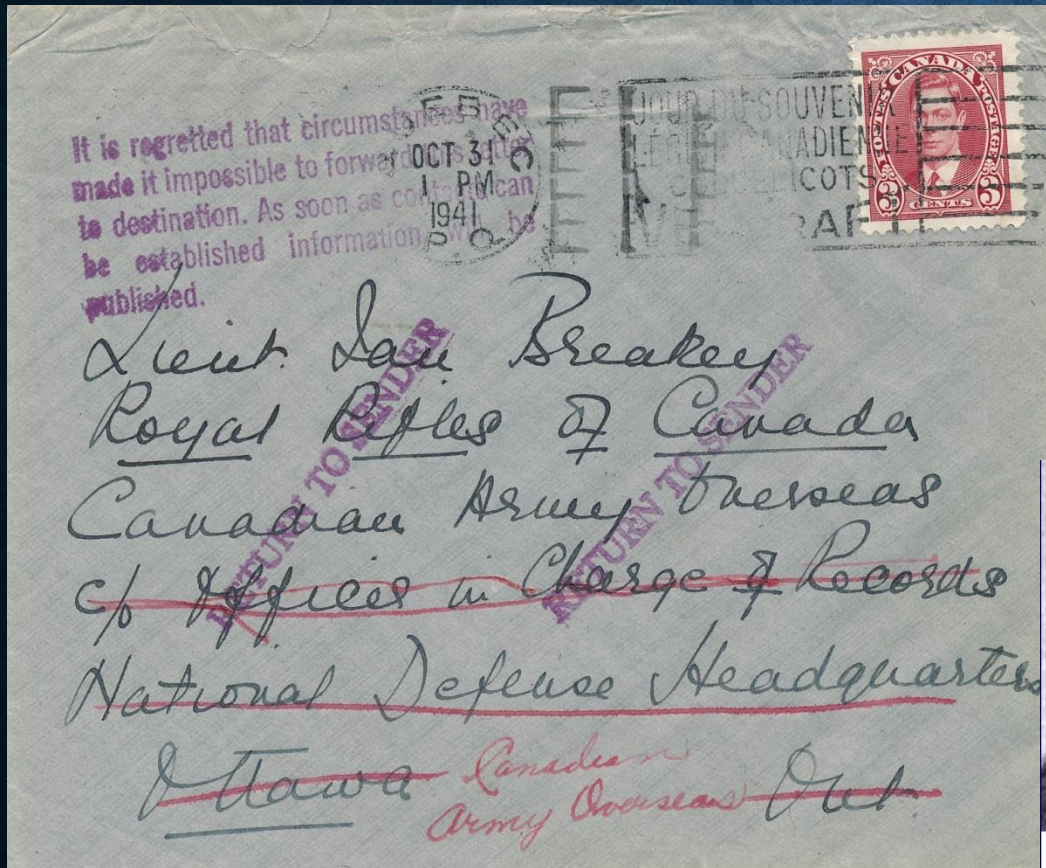 It is regretted that circumstances have
made it impossible to forward this letter
to destination. As soon as contact can
be established information will be
published.
QUEBEC
OCT 3
1 PM
1941
P.Q.
JOUR DU SOUVENIR
LÉGION CANADIENNE
COQUELICOTS
CANADA
POSTES POSTAGE
3 CENTS 3
Lieut. Ian Breakey
Royal Rifles of Canada
Canadian Army Overseas
c/o Officer in Charge of Records
National Defense Headquarters
Ottawa Ont.
Canadian
Army Overseas
RETURN TO SENDER
RETURN TO SENDER